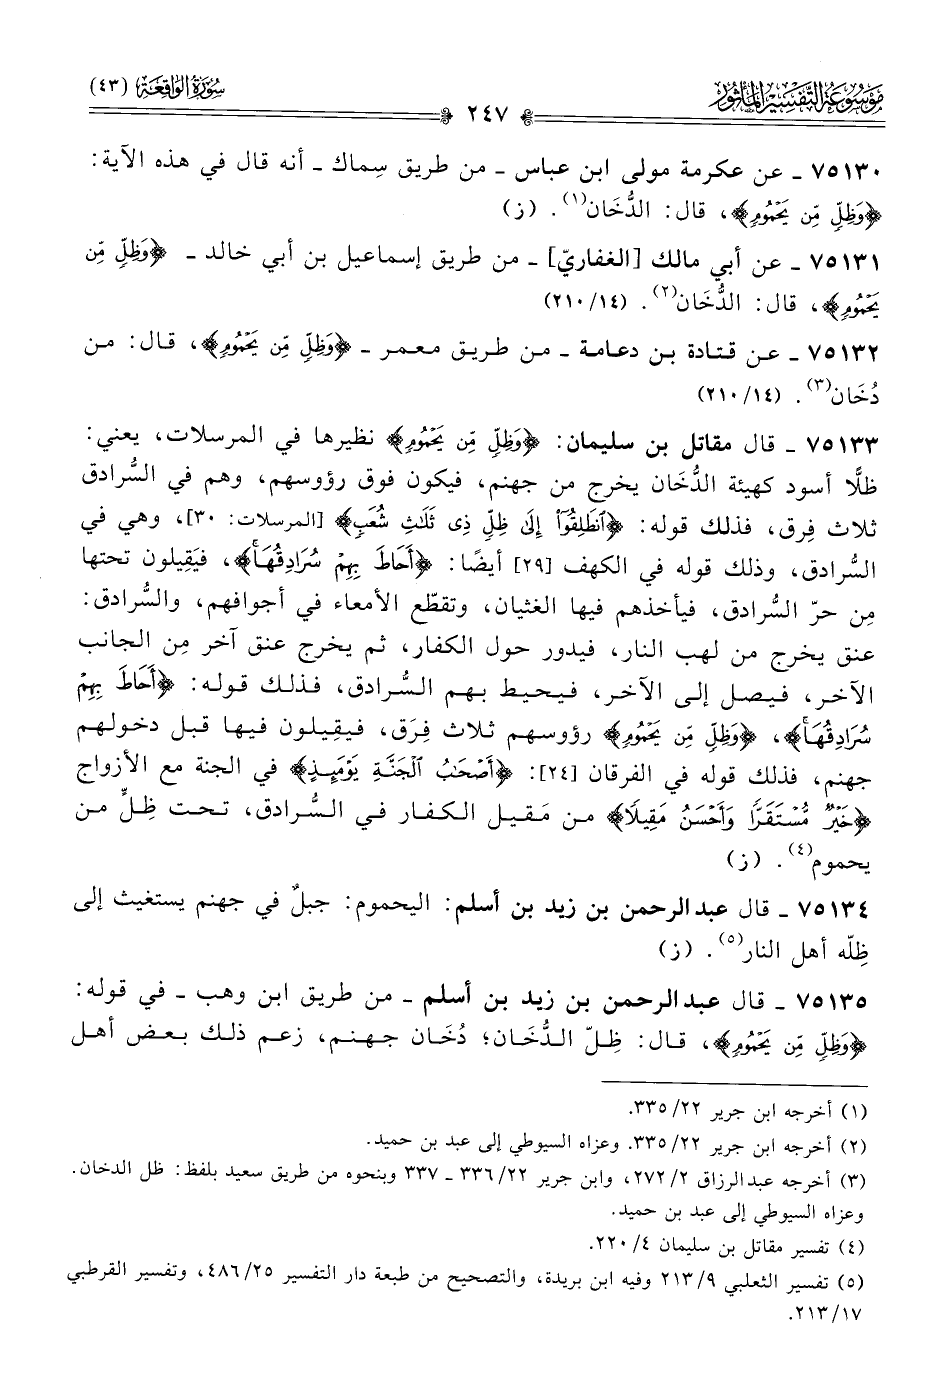 مَوْسُوعَة التَّفْسِير المَأْثُور
سُورَةُ الوَاقِعَة (٤٣)
٢٤٧
٧٥١٣٠ ـ عن عكرمة مولى ابن عباس ـ من طريق سِماك ـ أنه قال في هذه الآية:
﴿وَظِلٍّ مِّن يَحْمُومٍ﴾، قال: الدُّخَان(١). (ز)
٧٥١٣١ ـ عن أبي مالك [الغفاريّ] ـ من طريق إسماعيل بن أبي خالد ـ ﴿وَظِلٍّ مِّن
يَحْمُومٍ﴾، قال: الدُّخَان(٢). (٢١٠/١٤)
٧٥١٣٢ ـ عن قتادة بن دعامة ـ من طريق معمر ـ ﴿وَظِلٍّ مِّن يَحْمُومٍ﴾، قال: من
دُخَان(٣). (٢١٠/١٤)
٧٥١٣٣ ـ قال مقاتل بن سليمان: ﴿وَظِلٍّ مِّن يَحْمُومٍ﴾ نظيرها في المرسلات، يعني:
ظلًّا أسود كهيئة الدُّخَان يخرج من جهنم، فيكون فوق رؤوسهم، وهم في السُّرادق
ثلاث فِرق، فذلك قوله: ﴿ٱنطَلِقُوٓاْ إِلَىٰ ظِلٍّ ذِى ثَلَٰثِ شُعَبٍ﴾ [المرسلات: ٣٠]، وهي في
السُّرادق، وذلك قوله في الكهف [٢٩] أيضًا: ﴿أَحَاطَ بِهِمْ سُرَادِقُهَاۚ﴾، فيَقِيلون تحتها
مِن حرّ السُّرادق، فيأخذهم فيها الغثيان، وتقطّع الأمعاء في أجوافهم، والسُّرادق:
عنق يخرج من لهب النار، فيدور حول الكفار، ثم يخرج عنق آخر مِن الجانب
الآخر، فيصل إلى الآخر، فيحيط بهم السُّرادق، فذلك قوله: ﴿أَحَاطَ بِهِمْ
سُرَادِقُهَاۚ﴾، ﴿وَظِلٍّ مِّن يَحْمُومٍ﴾ رؤوسهم ثلاث فِرَق، فيقيلون فيها قبل دخولهم
جهنم، فذلك قوله في الفرقان [٢٤]: ﴿أَصْحَٰبُ ٱلْجَنَّةِ يَوْمَئِذٍ﴾ في الجنة مع الأزواج
﴿خَيْرٌ مُّسْتَقَرًّا وَأَحْسَنُ مَقِيلًا﴾ من مَقيل الكفار في السُّرادق، تحت ظِلٍّ من
يحموم(٤). (ز)
٧٥١٣٤ ـ قال عبدالرحمن بن زيد بن أسلم: اليحموم: جبلٌ في جهنم يستغيث إلى
ظِلّه أهل النار(٥). (ز)
٧٥١٣٥ ـ قال عبدالرحمن بن زيد بن أسلم ـ من طريق ابن وهب ـ في قوله:
﴿وَظِلٍّ مِّن يَحْمُومٍ﴾، قال: ظِلّ الدُّخَان؛ دُخَان جهنم، زعم ذلك بعض أهل
(١) أخرجه ابن جرير ٢٢/ ٣٣٥.
(٢) أخرجه ابن جرير ٢٢/ ٣٣٥. وعزاه السيوطي إلى عبد بن حميد.
(٣) أخرجه عبدالرزاق ٢/ ٢٧٢، وابن جرير ٢٢/ ٣٣٦ ـ ٣٣٧ وبنحوه من طريق سعيد بلفظ: ظل الدخان.
وعزاه السيوطي إلى عبد بن حميد.
(٤) تفسير مقاتل بن سليمان ٤/ ٢٢٠.
(٥) تفسير الثعلبي ٩/ ٢١٣ وفيه ابن بريدة، والتصحيح من طبعة دار التفسير ٢٥/ ٤٨٦، وتفسير القرطبي
١٧/ ٢١٣.